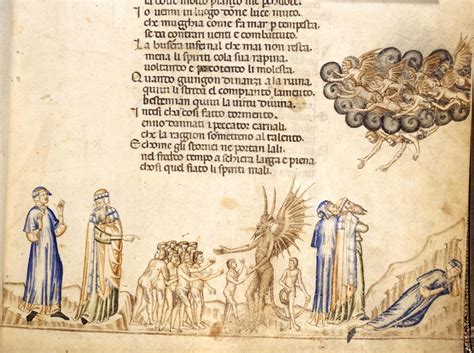 la doue molto pianto me pchuote
Io uenni in luogo come luce muto
che mugghia come fa mar p tempesta
se da contrari uenti e combattuto
La bufera infernal che mai non resta
mena li spiriti cola sua rapina
uoltando e pcotento li molesta
Quanto giungon dinanzi ala ruina
quiui li strida el compianto lamento
bestemian quiui la uirtu diuina
Intesi che cosi fatto tormento
enno dannati i peccator carnali
che la ragion sometteno al talento
E chome gli stornei ne portan lali
nel freddo tempo a schiera larga e piena
chosi quel fiato li spiriti mali